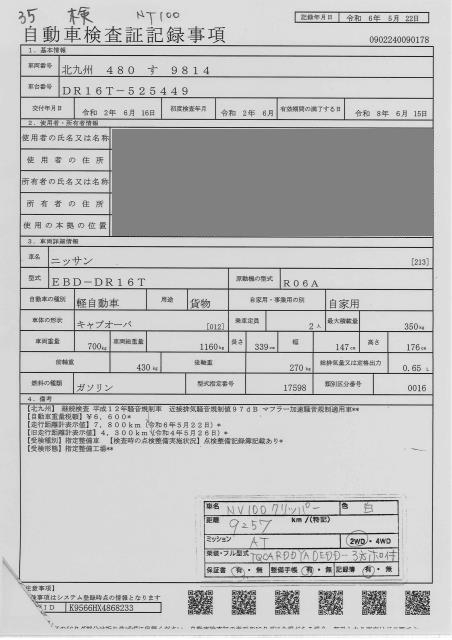 35 検 NT100
記録年月日 令和 6年 5月 22日
自動車検査証記録事項
0902240090178
1. 基本情報
車両番号 北九州 480 す 9814
車台番号 DR16T-525449
交付年月日 令和 2年 6月 16日 初度検査年月 令和 2年 6月 有効期間の満了する日 令和 8年 6月 15日
2. 使用者・所有者情報
使用者の氏名又は名称
使用者の住所
所有者の氏名又は名称
所有者の住所
使用の本拠の位置
3. 車両詳細情報
車名 ニッサン [213]
型式 EBD-DR16T 原動機の型式 R06A
自動車の種別 軽自動車 用途 貨物 自家用・事業用の別 自家用
車体の形状 キャブオーバ [012] 乗車定員 2人 最大積載量 350kg
車両重量 700kg 車両総重量 1160kg 長さ 339cm 幅 147cm 高さ 176cm
前軸重 430kg 後軸重 270kg 総排気量又は定格出力 0.65 L
燃料の種類 ガソリン 型式指定番号 17598 類別区分番号 0016
4. 備考
【北九州】 継続検査 平成12年騒音規制車 近接排気騒音規制値97dB マフラー加速騒音規制適用車**
【自動車重量税額】¥6,600*
【走行距離計表示値】7,800km(令和6年5月22日)*
【旧走行距離計表示値】4,300km(令和4年5月26日)*
【受検種別】指定整備車 【検査時の点検整備実施状況】点検整備記録簿記載あり*
【受検形態】指定整備工場**
車名 NV100クリッパー 色 白
距離 9257 km/(特記)
ミッション AT 2WD・4WD
架装・フル型式
保証書 有・無 整備手帳 有・無 記録簿 有・無
注意事項】
事項はシステム登録時点の情報となります
ID K9566HX4868233